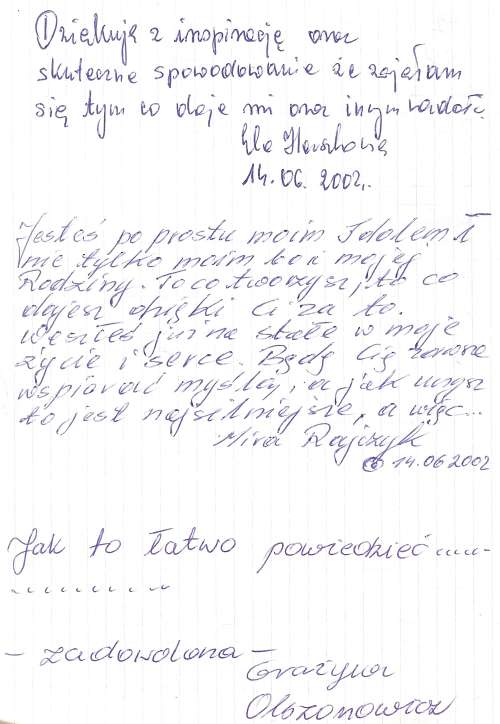 Dziękuję z inspirację oraz
skuteczne spowodowanie że zajęłam
się tym co daje mi oraz innym radość.
Ela
14.06.2002r.
Jesteś po prostu moim Idolem I
nie tylko moim bo i mojej
Rodziny. To co tworzysz, to co
dajesz dzięki Ci za to.
Weszłeś już na stałe w moje
życie i serce. Będę Cię zawsze
wspierać myślą, a jak
to jest najsilniejsze, a więc...
Mira Rajczyk
14.06 2002
Jak to łatwo powiedzieć.....-
.........
- zadowolona -
Grażyna
Olszonowicz